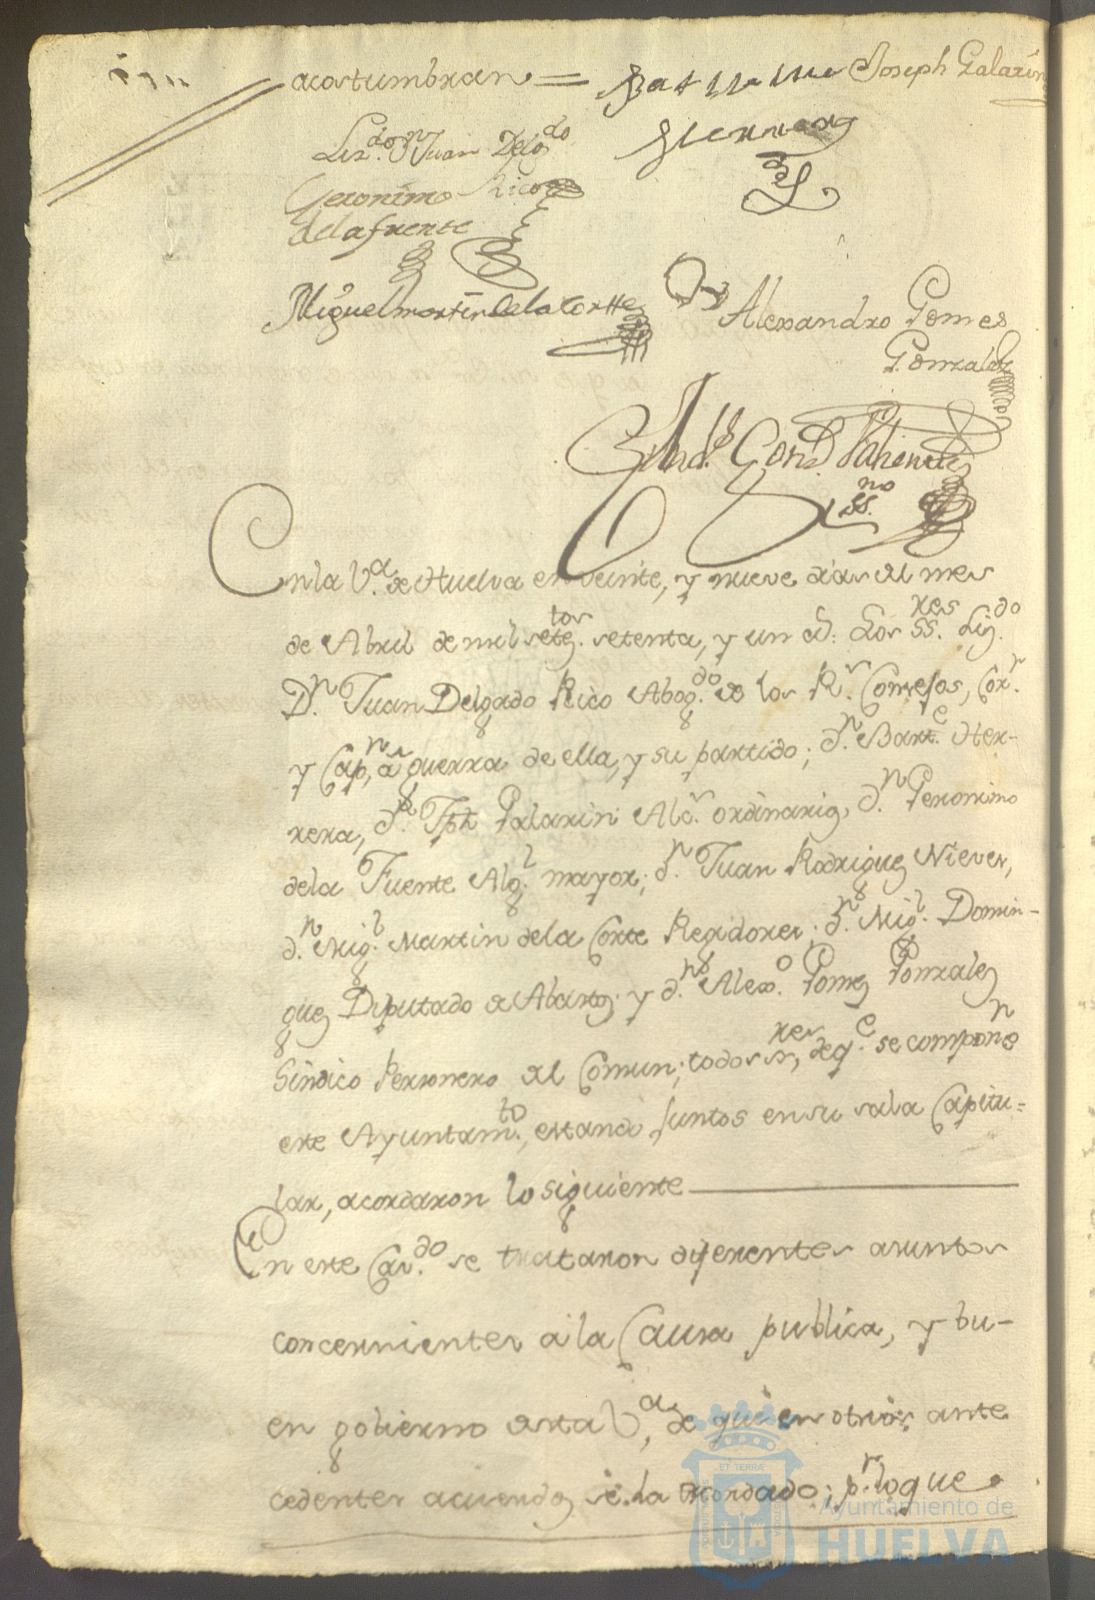 acostumbran =
Joseph Galarin
Liz.do Dn Juan Delg.do
Rico
Geronimo
dela fuente
Miguel martin de la Corte
Alexandro Gomes
Gonzalez
ss.no
En la V.a de Huelva en veinte, y nueve dias del mes
de Abril de mil setez.tos setenta, y un a.s: Los SS.res Liz.do
D.n Juan Delgado Rico Abog.do de los R.s Consejos, Cor.r
y Cap.n â guerra de ella, y su partido; d.n Bart.e Her-
rera, d.n Jph Galarin Alc.s ordinarios, d.n Geronimo
dela Fuente Alg.l mayor; d.n Juan Rodriguez Nieves,
d.n Mig.l Martin dela Corte Regidores; d.n Mig.l Domin-
guez Diputado de Abastos; y d.n Alex.o Gomez Gonzalez
Sindico Personero del Comun; todos ss.res, de q.e se compone
este Ayuntam.to, estando juntos en su sala Capitu=
lar, acordaron lo siguiente
En este Cav.do se trataron diferentes asuntos
concernientes a la Causa publica, y bu-
en gobierno desta V.a, de que en otros ante
cedentes acuerdos se ha acordado; p.r lo que
ET TERRÆ
Ayuntamiento de
HUELVA